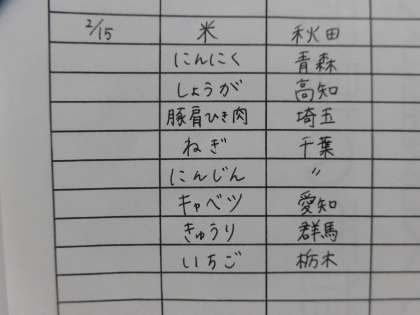 2/15 米 秋田
にんにく 青森
しょうが 高知
豚肩ひき肉 埼玉
ねぎ 千葉
にんじん 〃
キャベツ 愛知
きゅうり 群馬
いちご 栃木